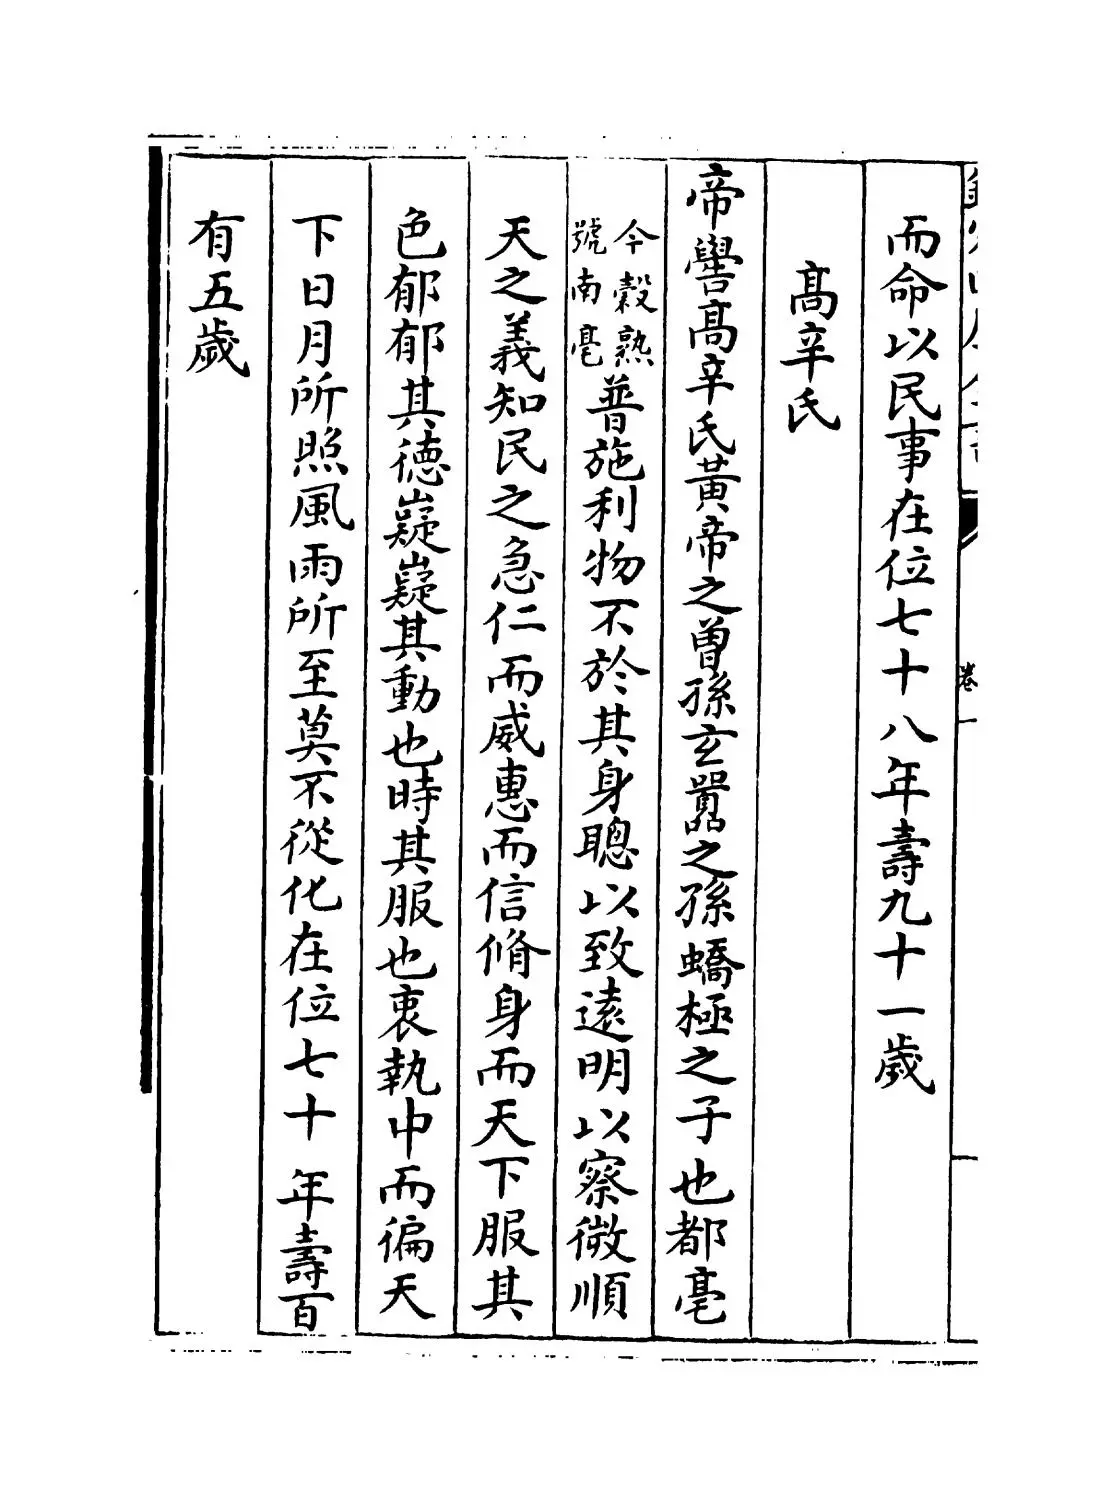 而命以民事在位七十八年壽九十一歲
髙辛氏
帝嚳髙辛氏黃帝之曽孫玄囂之孫蟜極之子也都亳
今穀熟
號南亳
普施利物不於其身聰以致逺明以察微順
天之義知民之急仁而威惠而信脩身而天下服其
色郁郁其徳嶷嶷其動也時其服也衷執中而徧天
下日月所照風雨所至莫不從化在位七十年壽百
有五歲
卷一